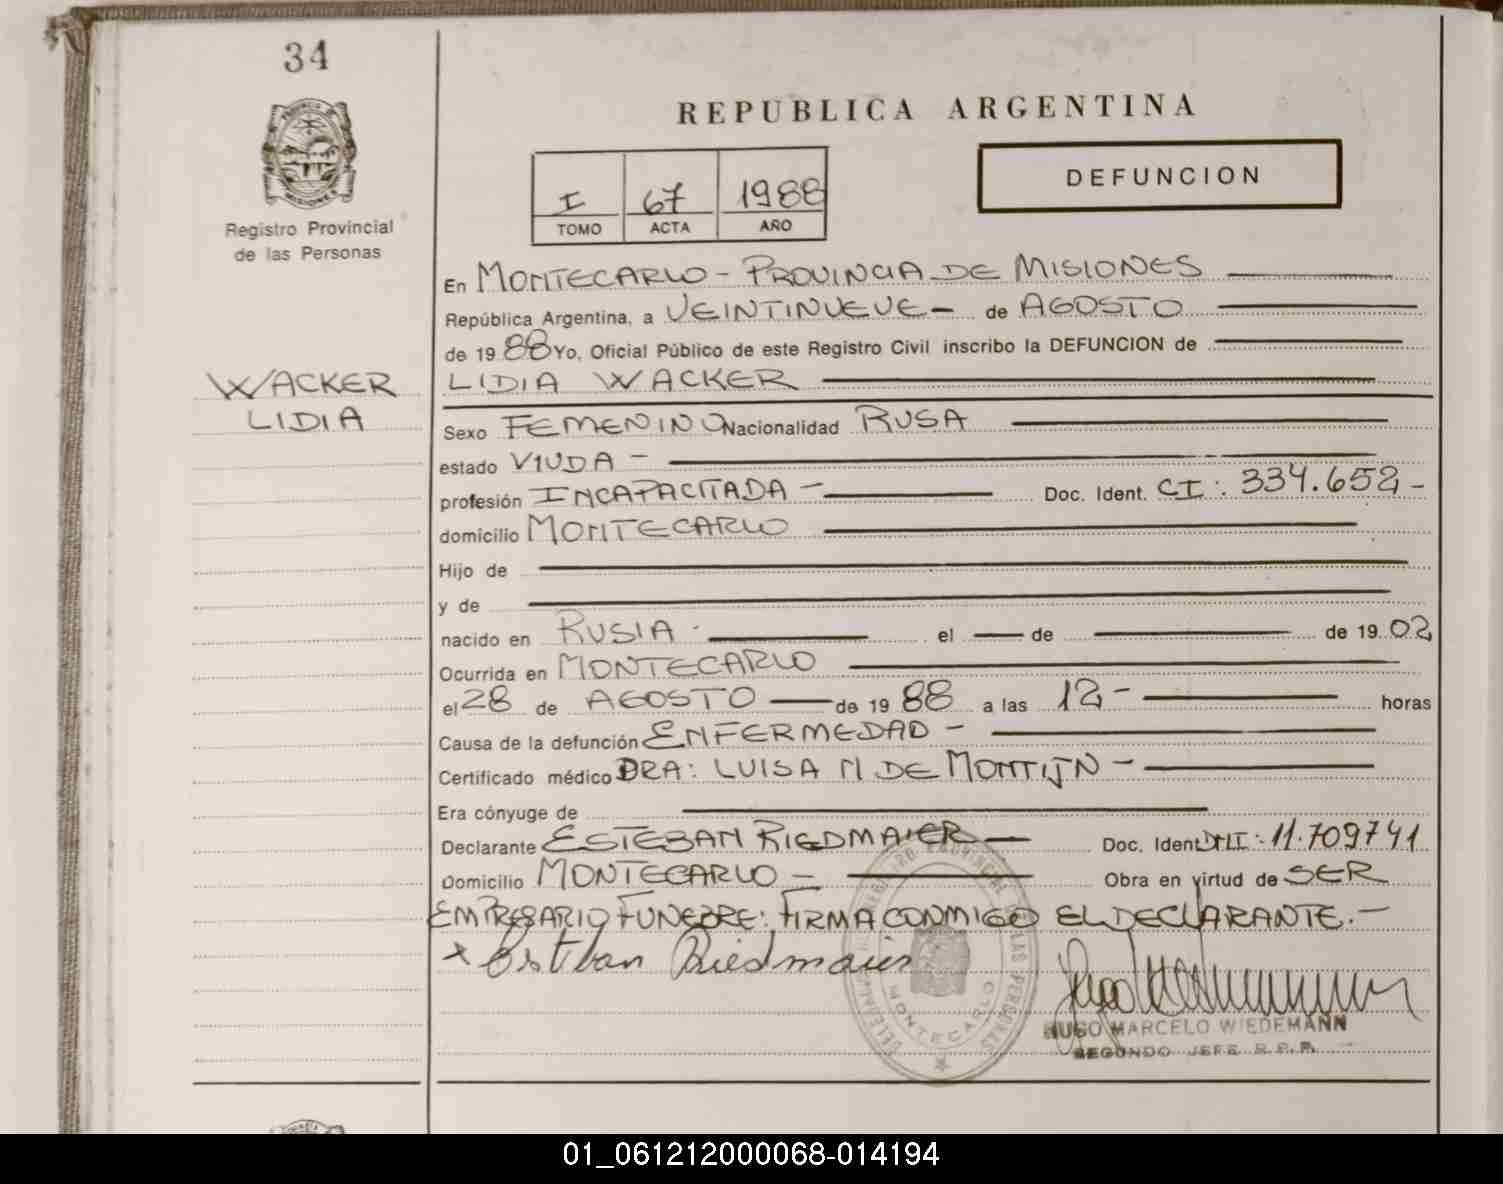 34
REPUBLICA ARGENTINA
DEFUNCION
I 67 1988
TOMO ACTA AÑO
Registro Provincial
de las Personas
En MONTECARLO - PROVINCIA DE MISIONES
República Argentina, a VEINTINUEVE - de AGOSTO
de 19 88 Yo, Oficial Público de este Registro Civil inscribo la DEFUNCION de
WACKER
LIDIA
LIDIA WACKER
Sexo FEMENINO Nacionalidad RUSA
estado VIUDA -
profesión INCAPACITADA - Doc. Ident. CI: 334.652 -
domicilio MONTECARLO
Hijo de
y de
nacido en RUSIA - el de de 19 02
Ocurrida en MONTECARLO
el 28 de AGOSTO de 19 88 a las 12 - horas
Causa de la defunción ENFERMEDAD -
Certificado médico DRA: LUISA M DE
Era cónyuge de
Declarante ESTEBAN RIEDMAIER Doc. Ident. DNI: 11.709741
Domicilio MONTECARLO - Obra en virtud de SER
EMPRESARIO FUNEBRE: FIRMA CONMIGO EL DECLARANTE. -
x Esteban Riedmaier
MONTECARLO
HUGO MARCELO WIEDEMANN
SEGUNDO JEFE R.P.P.
01_061212000068-014194